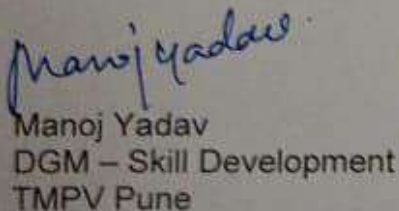 Manoj Yadav
Manoj Yadav
DGM – Skill Development
TMPV Pune